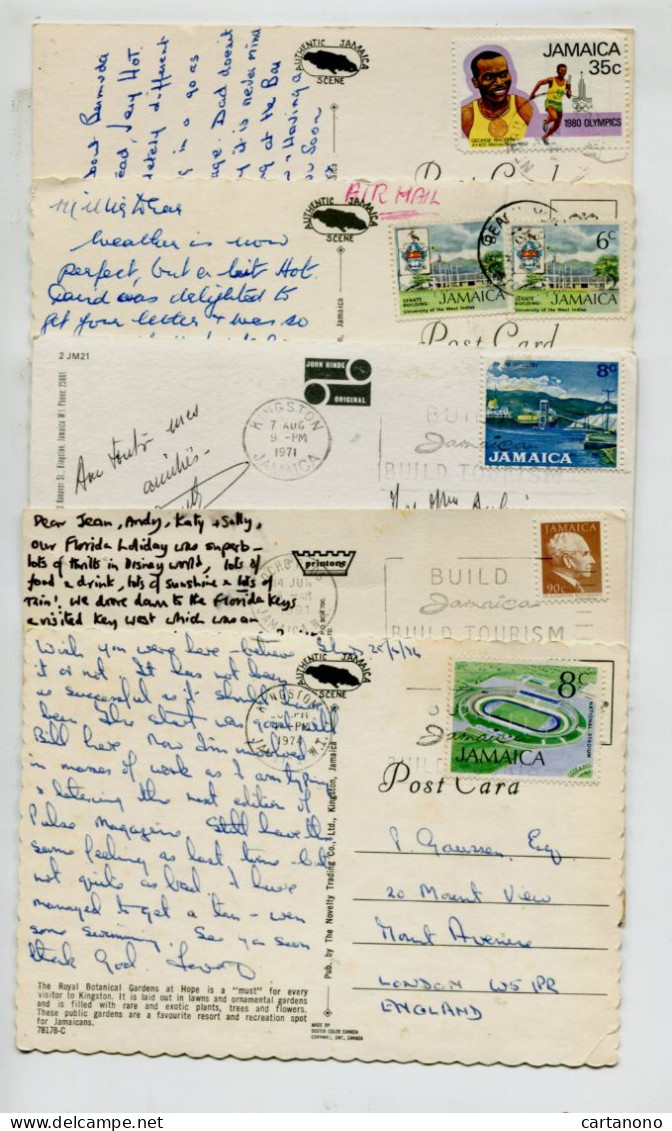 about Bermuda
Very Hot.
different
in a goas
Dad doesnt
it is never mind
at the Bar
Having a
Soon
AUTHENTIC JAMAICA
SCENE
JAMAICA
35c
1980 OLYMPICS
Post Card
AIR MAIL
AUTHENTIC JAMAICA
SCENE
weather is now
perfect, but a bit Hot.
David was delighted to
get your letter & was so
SENATE
BUILDING
University of the West Indies
JAMAICA
6c
SENATE
BUILDING
University of the West Indies
JAMAICA
Post Card
2 JM21
JOHN HINDE
ORIGINAL
KINGSTON
7 AUG
9 - PM
1971
JAMAICA
BUILD
Jamaica
BUILD TOURISM
8c
amitiés
Dear Jean, Andy, Katy & Sally,
Our Florida holiday was superb -
lots of thrills in Disney world, lots of
food & drink, lots of sunshine & lots of
rain! We drove down to the Florida Keys
& visited Key West which was an
printons
BUILD
Jamaica
BUILD TOURISM
JAMAICA
90c
Wish you were here - believe
it or not. It has not been
as successful as it should have
been. The start was good till
Bill here. Now I'm involved
in masses of work as I am typing
& lettering the next edition of
Pulse Magazine. Still have the
same feeling as last time - but
not quite as bad. I have
managed to get a tan - even
some swimming. See you soon
thank God.
AUTHENTIC JAMAICA
SCENE
KINGSTON
1974
8c
NATIONAL STADIUM
JAMAICA
Post Card
P Gaussen, Esq
20 Mount View
Mount Avenue
LONDON W5 1PR
ENGLAND
Pub. by The Novelty Trading Co., Ltd., Kingston, Jamaica
The Royal Botanical Gardens at Hope is a "must" for every
visitor to Kingston. It is laid out in lawns and ornamental gardens
and is filled with rare and exotic plants, trees and flowers.
These public gardens are a favourite resort and recreation spot
for Jamaicans.
78178-C
MADE BY
DEXTER COLOR CANADA
CORNWALL, ONT., CANADA
www.delcampe.net
cartanono